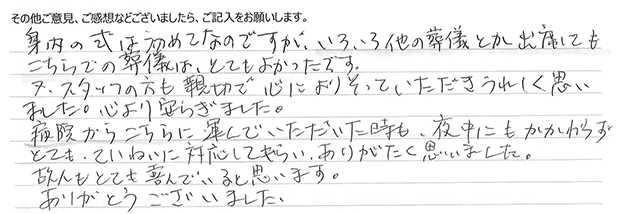 その他ご意見、ご感想などございましたら、ご記入をお願いします。
身内の式は初めてなのですが、いろいろ他の葬儀とか出席しても
こちらでの葬儀は、とてもよかったです。
又、スタッフの方も親切で心によりそっていただきうれしく思い
ました。心より安らぎました。
病院からこちらに運んでいただいた時も、夜中にもかかわらず
とても、ていねいに対応してもらい、ありがたく思いました。
故人もとても喜んでいると思います。
ありがとうございました。